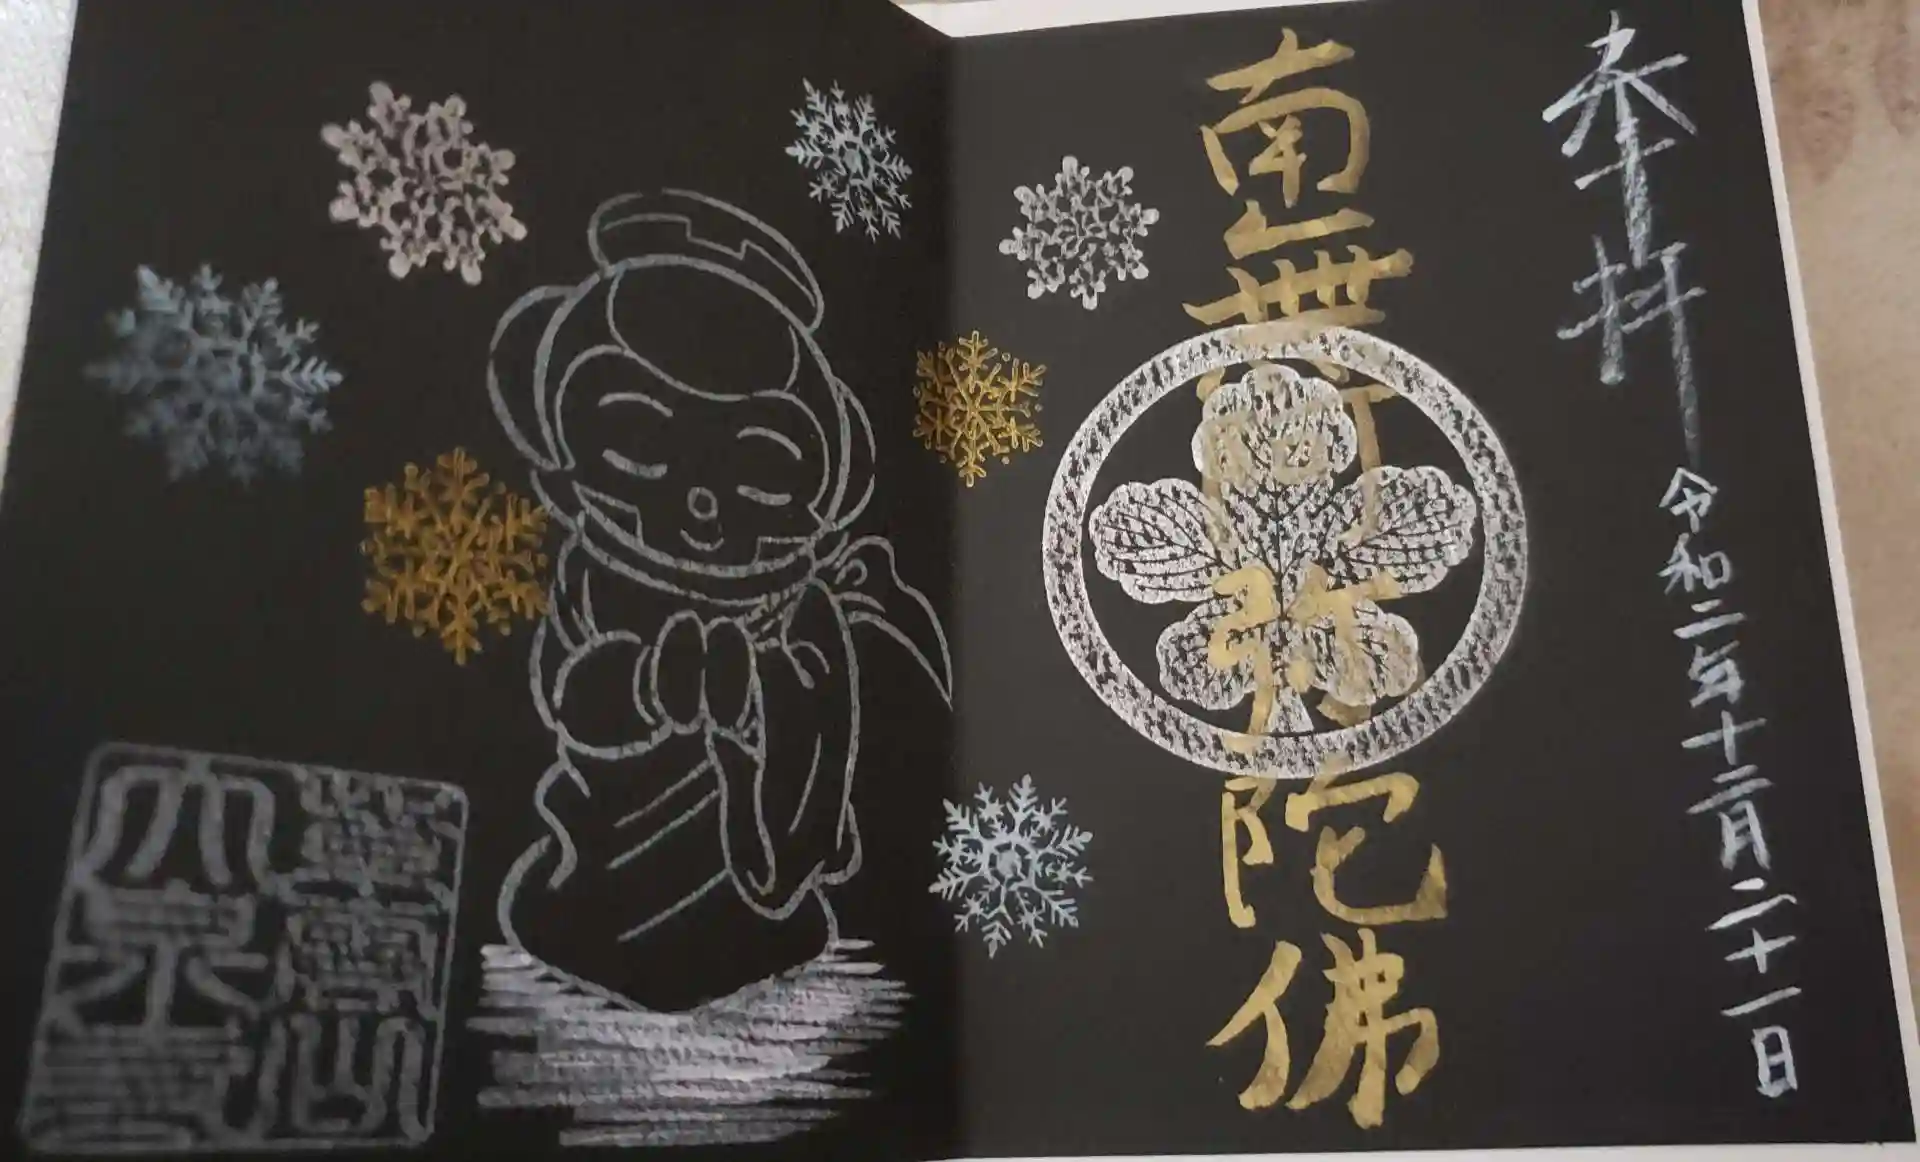 奉拝 令和二年十二月二十一日
南無阿弥陀佛
大泉寺